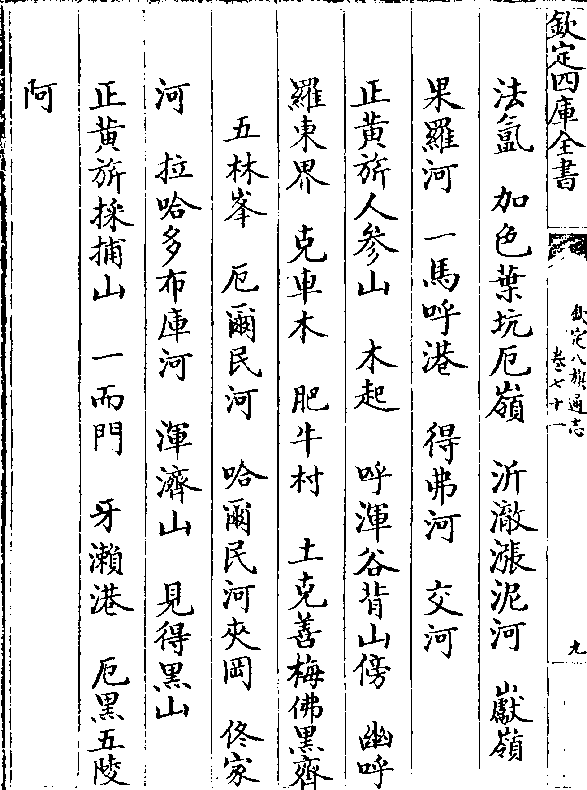 欽定四庫全書
欽定八旗通志
卷七十一
九
法氲 加色葉坑厄嶺 沂澈漲泥河 巘嶺
果羅河 一馬呼港 得弗河 交河
正黄旂人參山 木起 呼渾谷背山傍 幽呼
羅東界 克車木 肥牛村 土克善梅佛黑齊
五林峯 厄爾民河 哈爾民河夾岡 佟家
河 拉哈多布庫河 渾濟山 見得黑山
正黄旂採捕山 一而門 牙瀨港 厄黑五陵
阿